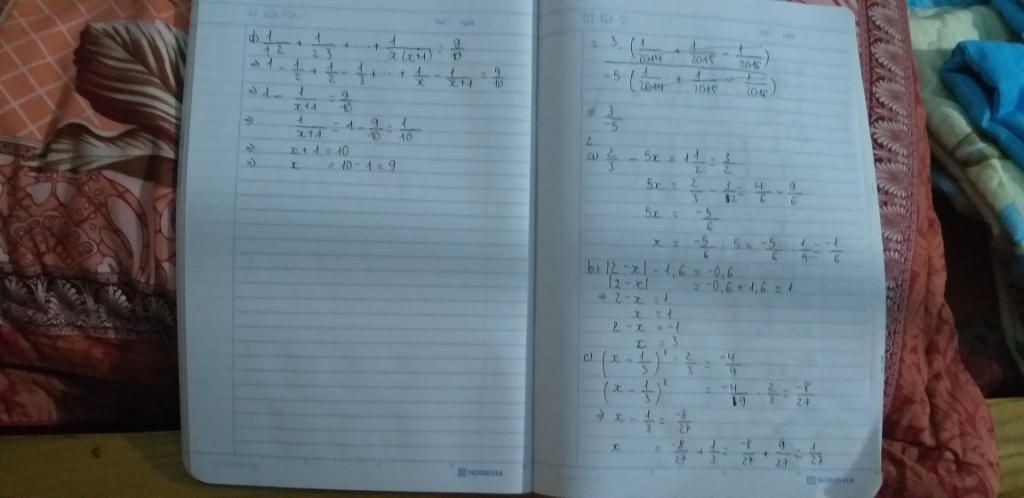 d) 1/1.2 + 1/2.3 + ... + 1/x(x+1) = 9/10
⇒ 1 - 1/2 + 1/2 - 1/3 + ... + 1/x - 1/x+1 = 9/10
⇒ 1 - 1/x+1 = 9/10
⇒ 1/x+1 = 1 - 9/10 = 1/10
⇒ x + 1 = 10
⇒ x = 10 - 1 = 9
HONG HA
= 3.(1/2014 + 1/2015 - 1/2016)
-5(1/2014 + 1/2015 - 1/2016)
= 3/-5
2
a) 2/3 - 5x = 1 1/2 = 3/2
5x = 2/3 - 3/2 = 4/6 - 9/6
5x = -5/6
x = -5/6 : 5 = -5/6 . 1/5 = -1/6
b) |2 - x| - 1,6 = -0,6
|2 - x| = -0,6 + 1,6 = 1
⇒ 2 - x = 1
x = 1
2 - x = -1
x = 3
c) (x - 1/3) : 2/3 = -4/9
(x - 1/3) = -4/9 . 2/3 = -8/27
⇒ x - 1/3 = -8/27
x = -8/27 + 1/3 = -8/27 + 9/27 = 1/27
HONG HA